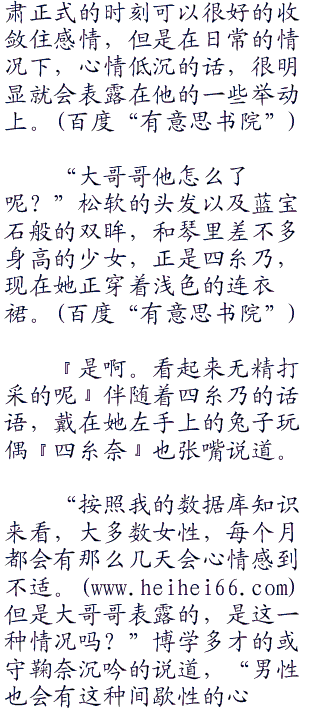 肃正式的时刻可以很好的收
敛住感情，但是在日常的情
况下，心情低沉的话，很明
显就会表露在他的一些举动
上。(百度“有意思书院”)
“大哥哥他怎么了
呢？”松软的头发以及蓝宝
石般的双眸，和琴里差不多
身高的少女，正是四糸乃，
现在她正穿着浅色的连衣
裙。(百度“有意思书院”)
『是啊。看起来无精打
采的呢』伴随着四糸乃的话
语，戴在她左手上的兔子玩
偶『四糸奈』也张嘴说道。
“按照我的数据库知识
来看，大多数女性，每个月
都会有那么几天会心情感到
不适。(www.heihei66.com)
但是大哥哥表露的，是这一
种情况吗？”博学多才的或
守鞠奈沉吟的说道，“男性
也会有这种间歇性的心